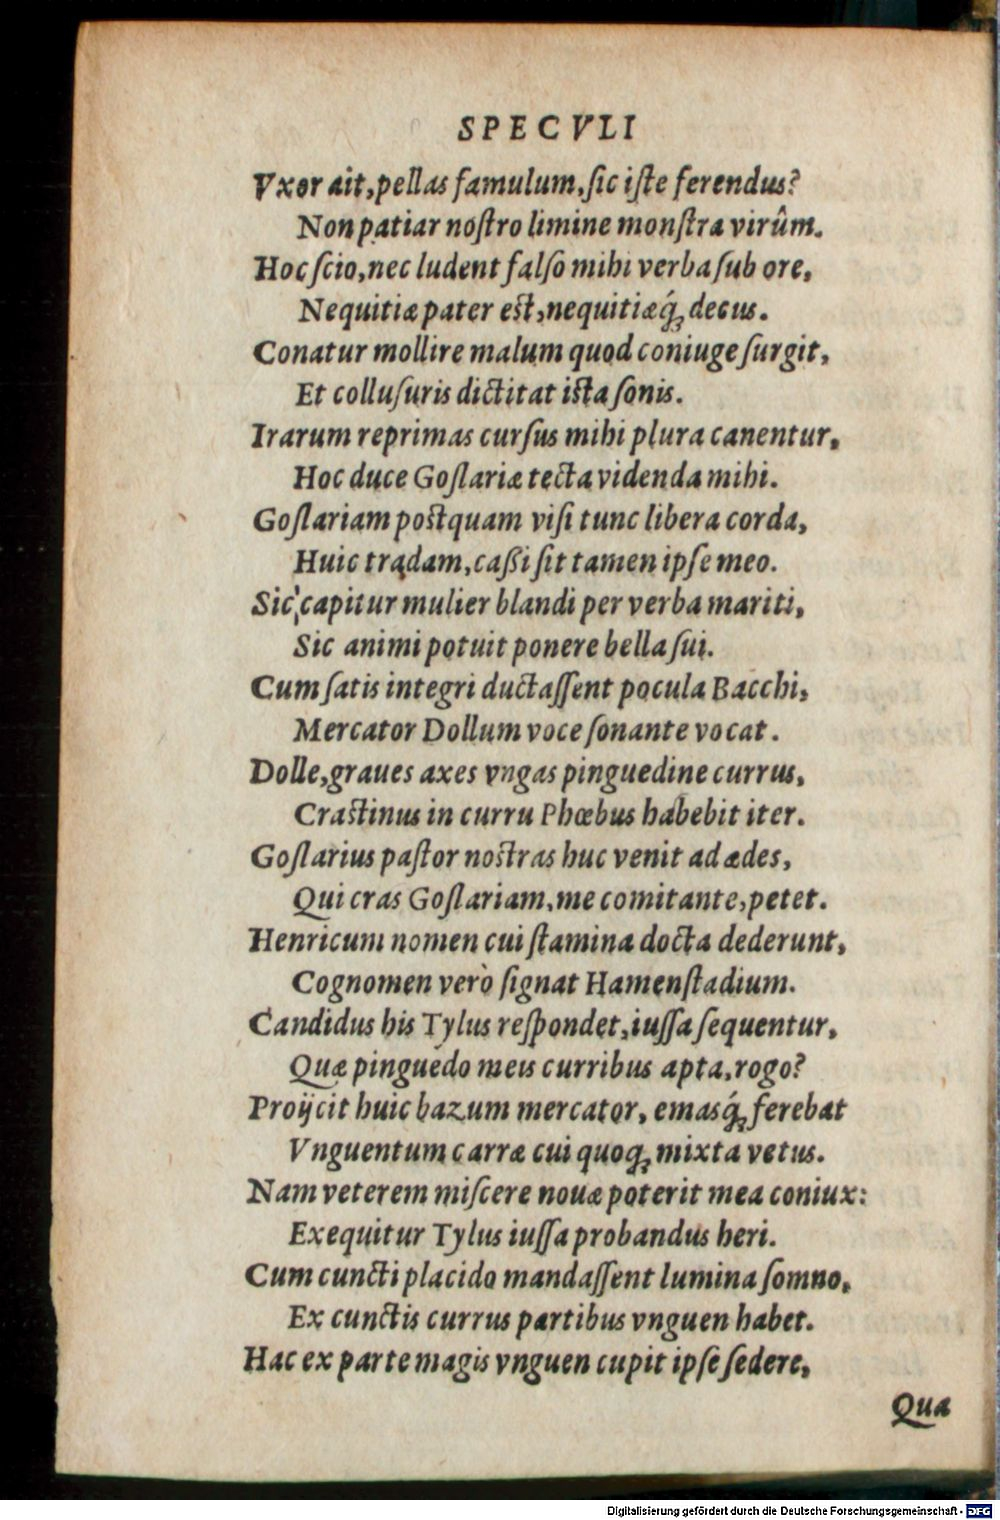 SPECVLI
Vxor ait, pellas famulum, sic iste ferendus?
Non patiar nostro limine monstra virûm.
Hoc scio, nec ludent falso mihi verba sub ore,
Nequitiæ pater est, nequitiæq́; decus.
Conatur mollire malum quod coniuge surgit,
Et collusuris dictitat ista sonis.
Irarum reprimas cursus mihi plura canentur,
Hoc duce Goslariæ tecta videnda mihi.
Goslariam postquam visi tunc libera corda,
Huic tradam, cassi sit tamen ipse meo.
Sic capitur mulier blandi per verba mariti,
Sic animi potuit ponere bella sui.
Cum satis integri ductassent pocula Bacchi,
Mercator Dollum voce sonante vocat.
Dolle, graues axes vngas pinguedine currus,
Crastinus in curru Phœbus habebit iter.
Goslarius pastor nostras huc venit ad ædes,
Qui cras Goslariam, me comitante, petet.
Henricum nomen cui stamina docta dederunt,
Cognomen verò signat Hamenstadium.
Candidus his Tylus respondet, iussa sequentur,
Quæ pinguedo meis curribus apta, rogo?
Proijcit huic bazum mercator, emasq́; ferebat
Vnguentum carræ cui quoq; mixta vetus.
Nam veterem miscere nouæ poterit mea coniux:
Exequitur Tylus iussa probandus heri.
Cum cuncti placido mandassent lumina somno,
Ex cunctis currus partibus vnguen habet.
Hac ex parte magis vnguen cupit ipse sedere,
Qua
Digitalisierung gefördert durch die Deutsche Forschungsgemeinschaft - DFG